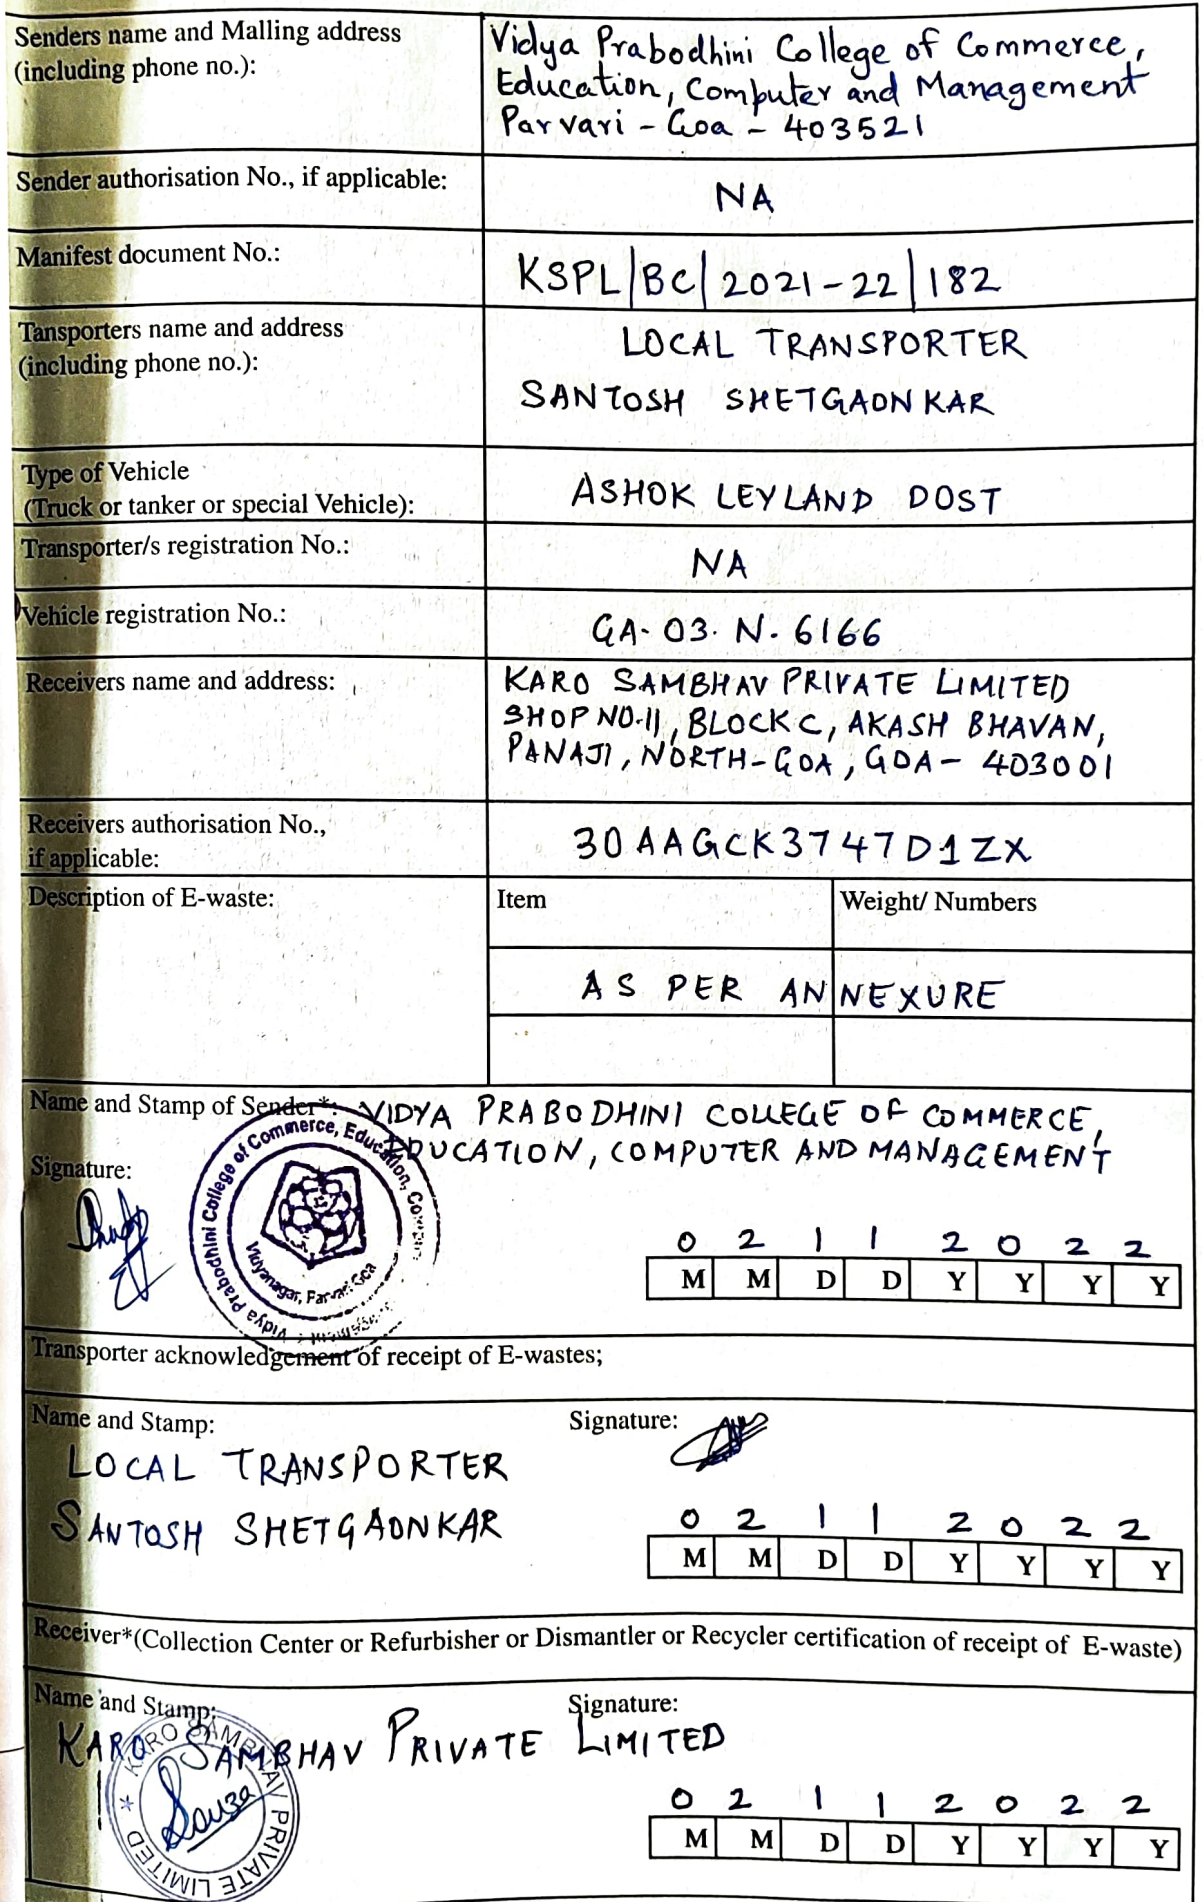 Senders name and Malling address
(including phone no.):
Vidya Prabodhini College of Commerce,
Education, Computer and Management
Parvari - Goa - 403521
Sender authorisation No., if applicable:
NA
Manifest document No.:
KSPL|BC|2021-22|182
Tansporters name and address
(including phone no.):
LOCAL TRANSPORTER
SANTOSH SHETGAONKAR
Type of Vehicle
(Truck or tanker or special Vehicle):
ASHOK LEYLAND DOST
Transporter/s registration No.:
NA
Vehicle registration No.:
GA-03. N. 6166
Receivers name and address:
KARO SAMBHAV PRIVATE LIMITED
SHOP NO.11, BLOCK C, AKASH BHAVAN,
PANAJI, NORTH-GOA, GOA- 403001
Receivers authorisation No.,
if applicable:
30AAGCK3747D1ZX
Description of E-waste:
Item
Weight/ Numbers
AS PER ANNEXURE
Name and Stamp of Sender*:
VIDYA PRABODHINI COLLEGE OF COMMERCE,
EDUCATION, COMPUTER AND MANAGEMENT
Signature:
Vidya Prabodhini College of Commerce, Education,
Vidyanagar, Parvari Goa
0 2 1 1 2 0 2 2
M M D D Y Y Y Y
Transporter acknowledgement of receipt of E-wastes;
Name and Stamp:
Signature:
LOCAL TRANSPORTER
SANTOSH SHETGAONKAR
0 2 1 1 2 0 2 2
M M D D Y Y Y Y
Receiver*(Collection Center or Refurbisher or Dismantler or Recycler certification of receipt of E-waste)
Name and Stamp:
Signature:
KARO SAMBHAV PRIVATE LIMITED
KARO SAMBHAV PRIVATE LIMITED *
Souza
0 2 1 1 2 0 2 2
M M D D Y Y Y Y